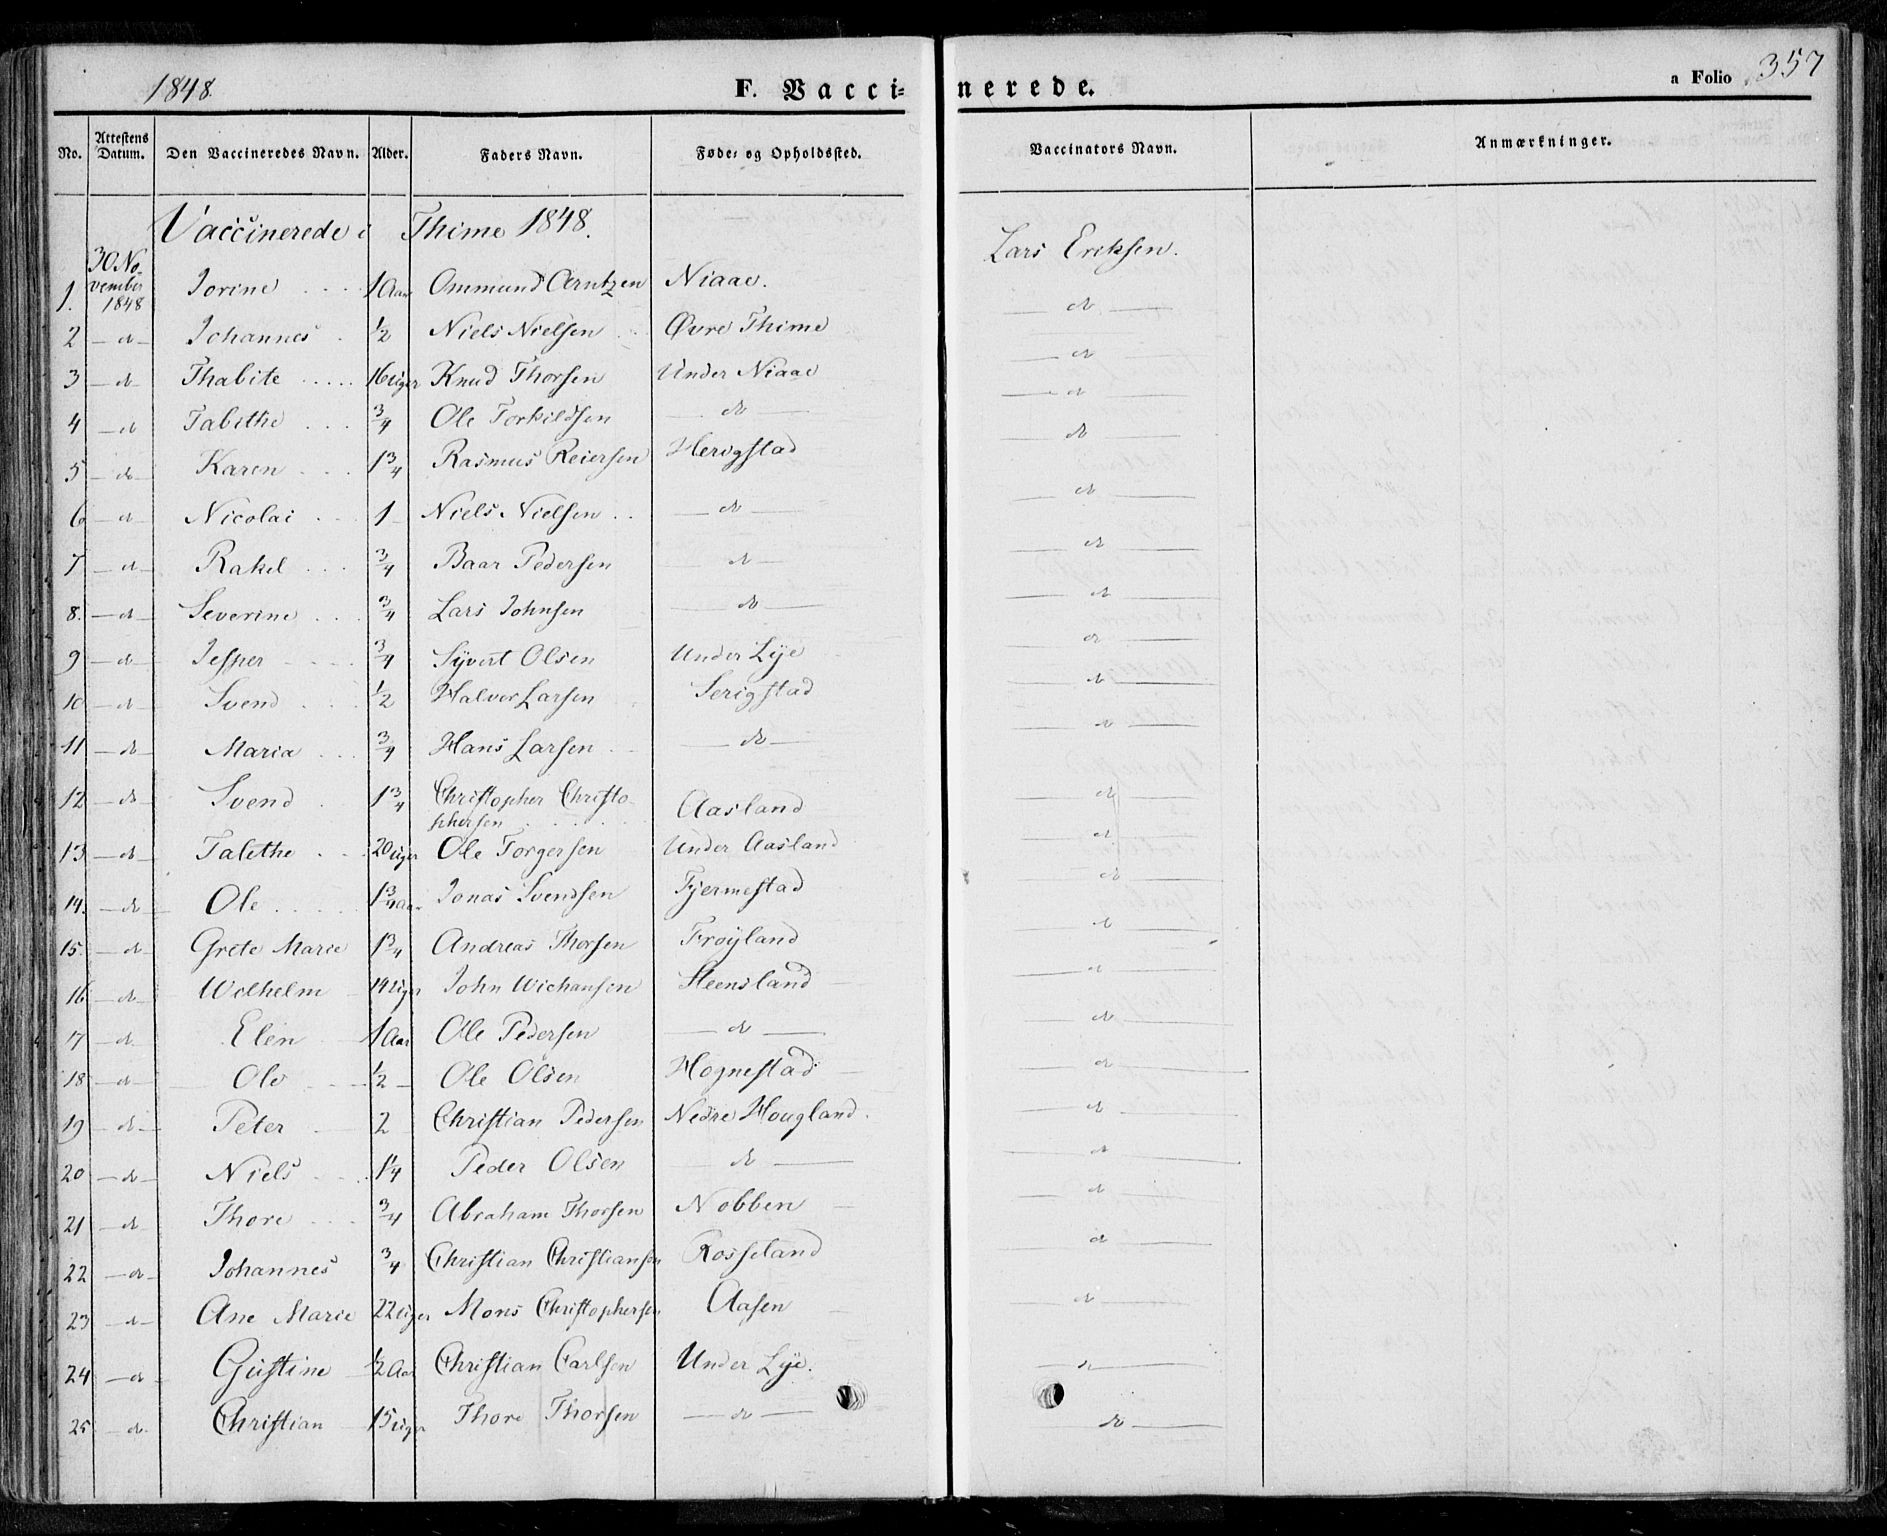 1848. F. Vacci-nerede. a Folio 357
No. Attestens Datum. Den Vaccineredes Navn. Alder. Faders Navn. Føde- og Opholdssted. Vaccinators Navn. Anmærkninger.
Vaccinerede i Thime 1848.
1. 30 November 1848 Jorine 1 Aar Ommund Arntzen Niaae. Lars Eriksen.
2 do Johannes 1/2 Niels Nielsen Øvre Thime do
3 do Thabite 16 Uger Knud Thorsen Under Niaae do
4 do Tabithe 3/4 Ole Torkildsen do do
5 do Karen 1 3/4 Rasmus Reiersen Herigstad do
6 do Nicolai 1 Niels Nielsen do do
7 do Rakel 3/4 Baar Pedersen do do
8. do Severine 3/4 Lars Johnsen do do
9 do Jesper 3/4 Syvert Olsen Under Lye do
10 do Svend 1/2 Halver Larsen Serigstad do
11 do Maria 3/4 Hans Larsen do do
12 do Svend 1 3/4 Christopher Christophersen Aasland do
13 do Talethe 20 Uger Ole Torgersen Under Aasland do
14. do Ole 1 3/4 Aar Jonas Svendsen Tjermestad do
15. do Grete Marie 1 3/4 Andreas Thorsen Frøyland do
16 do Wilhelm 14 Uger John Wichansen Steensland do
17 do Elen 1 Aar Ole Pedersen do do
18 do Ole 1/2 Ole Olsen Hognestad do
19 do Peter 2 Christian Pedersen Nedre Hougland. do
20 do Niels 1 1/4 Peder Olsen do do
21 do Thore 3/4 Abraham Thorsen Nobben do
22 do Johannes 3/4 Christian Christiansen Rosseland do
23 do Ane Marie 22 Uger Mons Christophersen Aasen do
24 do Gustine 1/2 Aar Christian Carlsen Under Lye. do
25 do Christian 15 Uger Thore Thorsen do do